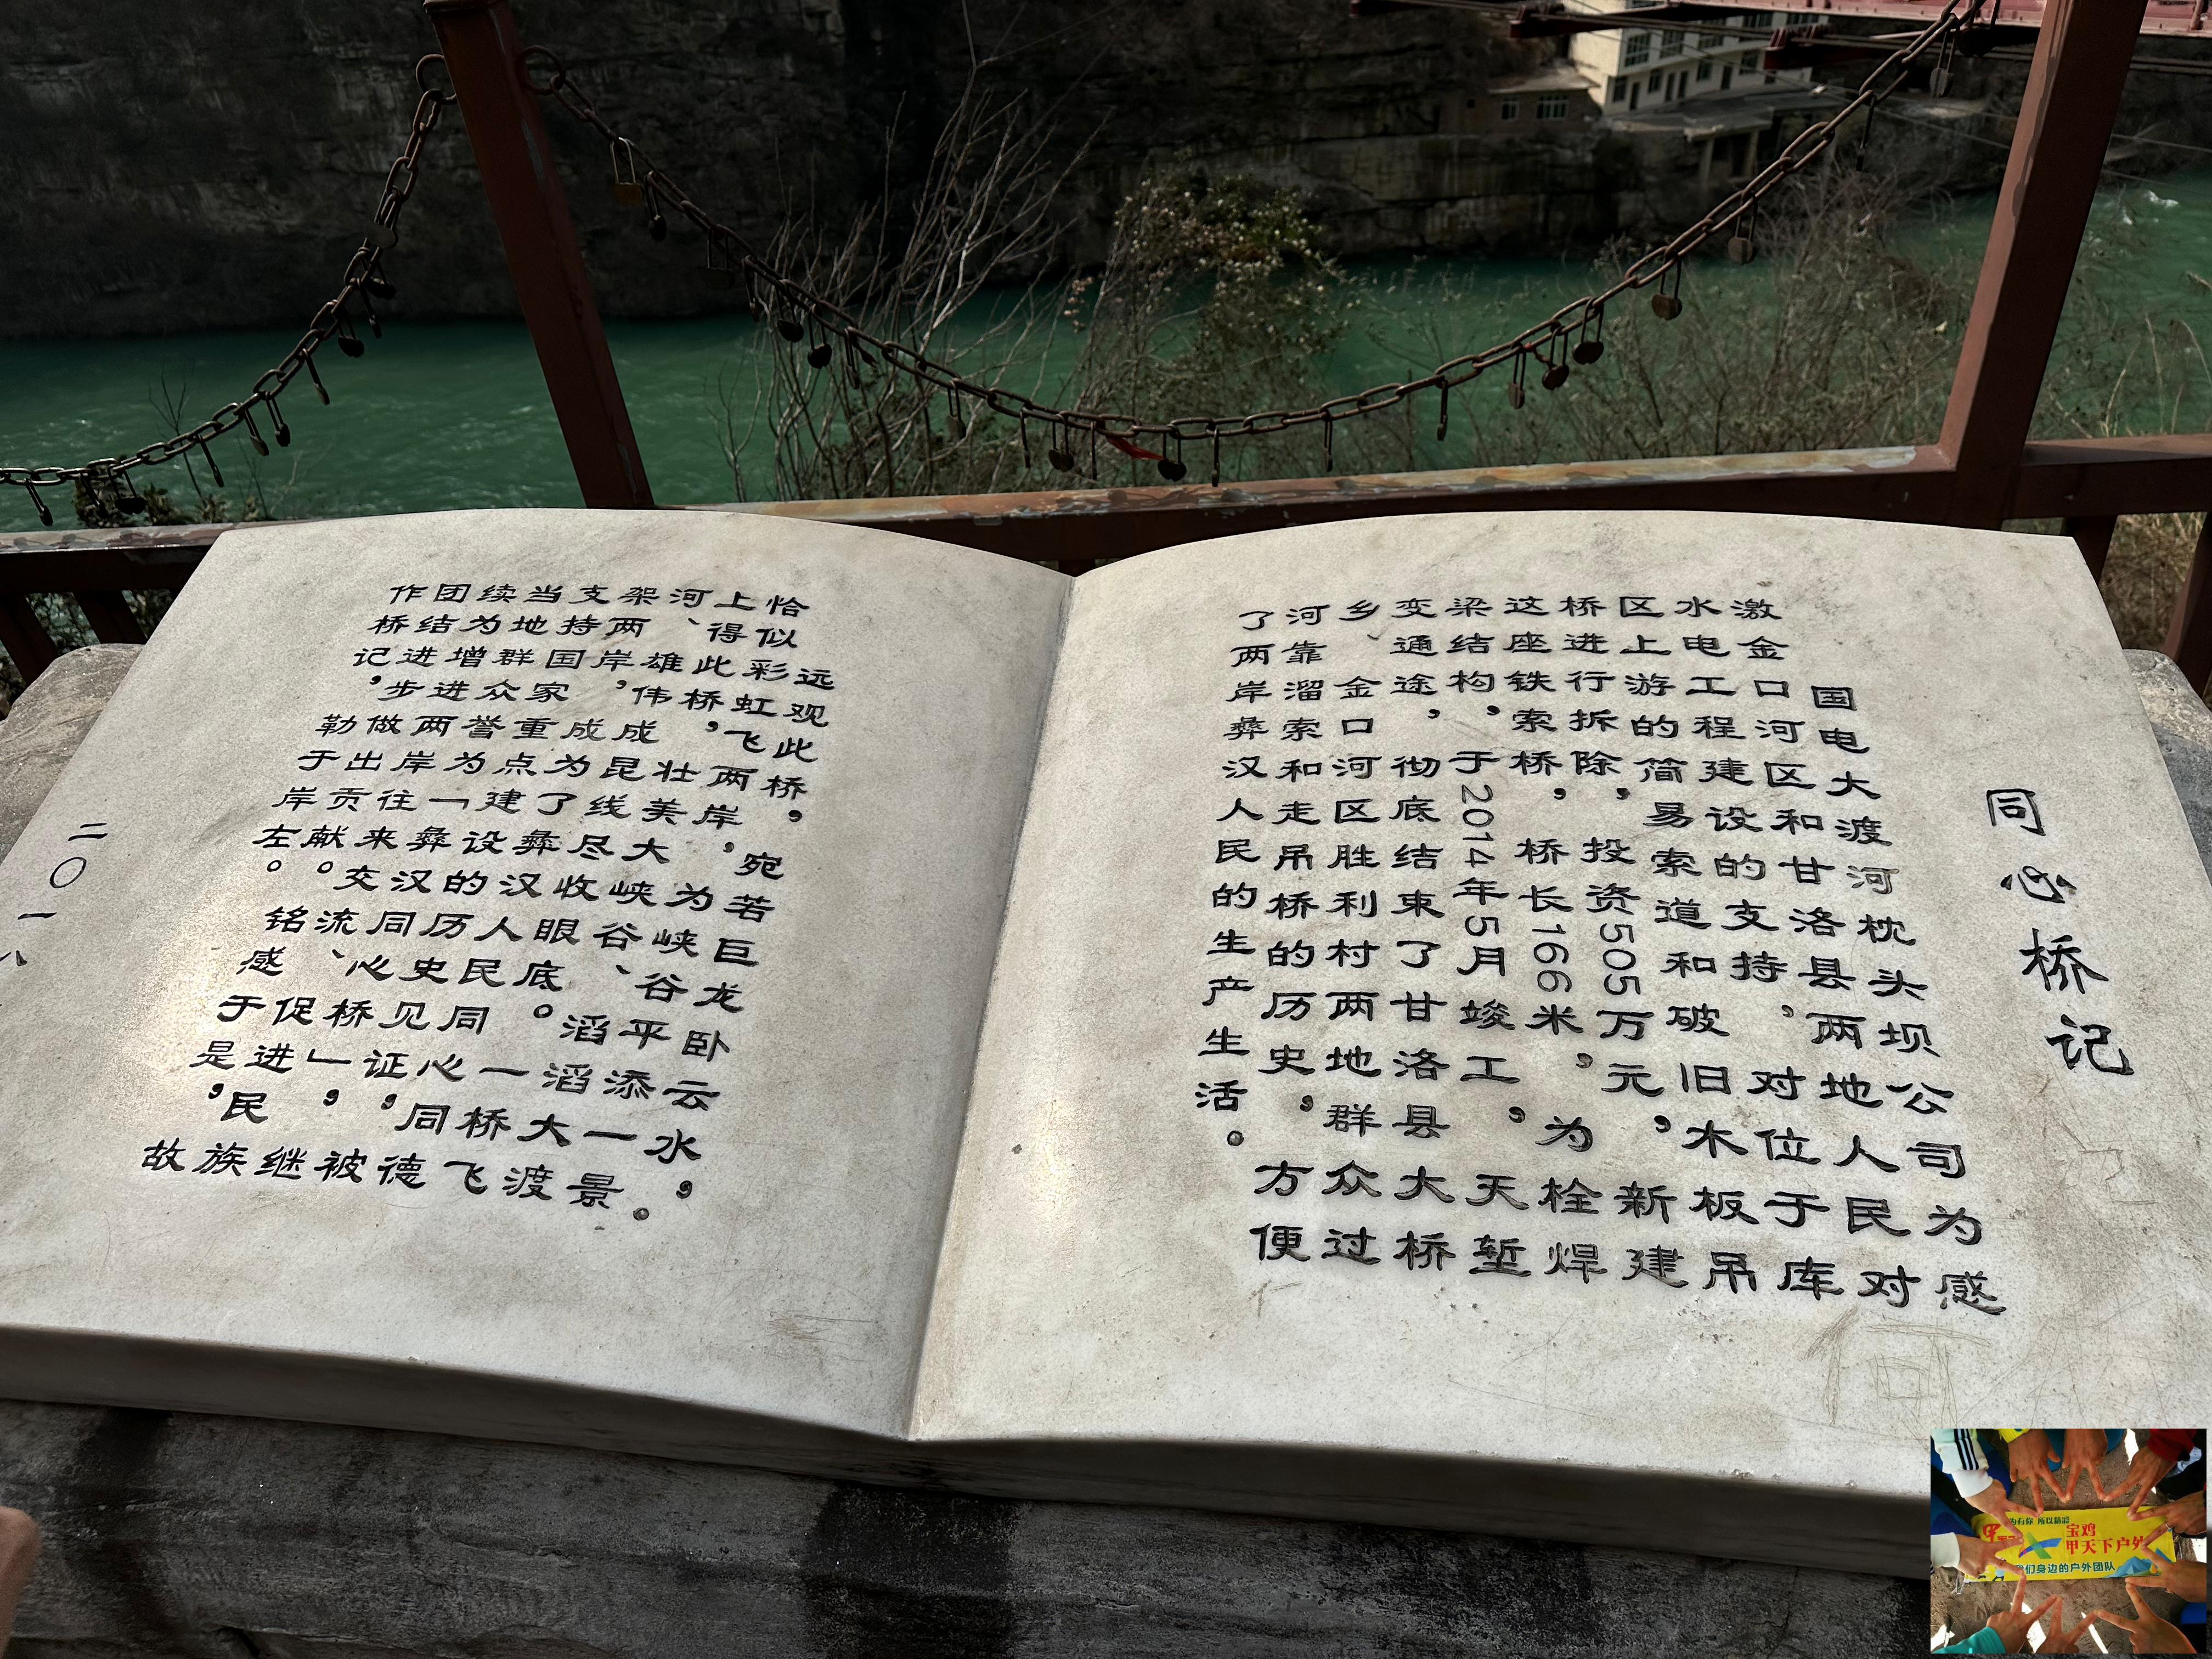 同心桥记
国电大渡河枕头坝公司为感
激金口河区和甘洛县两地人民对
水电工程建设的支持。对位于库
区上游的简易索道和破旧木板吊
桥进行拆除,投资505万元,新建
这座铁索桥,桥长166米,为栓焊
梁结构,于2014年5月竣工,天堑
变通途,彻底结束了甘洛县大桥
乡、金口河区胜利村两地群众过
河靠溜索和走吊桥的历史,方便
了两岸彝汉人民的生产生活。
远观此桥,宛若巨龙卧云水,
恰似彩虹飞两岸,为峡谷平添一景。
上得此桥,壮美大峡谷、滔滔大渡
河、雄伟成昆线尽收眼底。一桥飞
架两岸,成为了彝汉人民同心同德
支持国家重点建设的历史见证,被
当地群众誉为「彝汉同心桥」,继
续为增进两岸往来交流、促进民族
团结进步做出贡献。铭感于是,故
作桥记,勒于岸左。
二〇一八
宝鸡
甲天下户外
们身边的户外团队